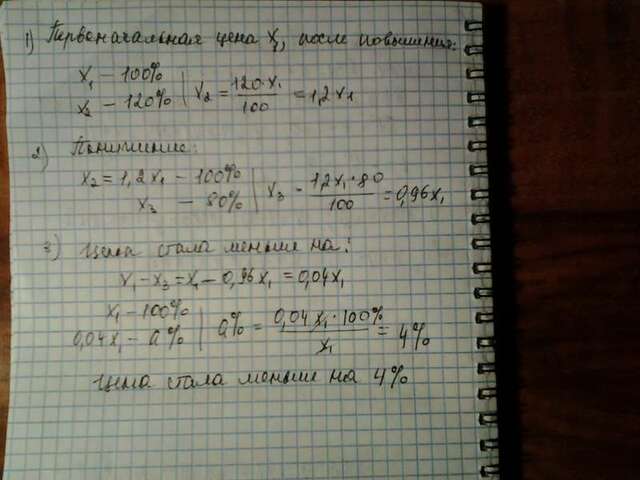 1) Первоначальная цена x₁, после повышения:
x₁ – 100% | x₂ = 120·x₁/100 = 1,2x₁
x₂ – 120%
2) Понижение:
x₂ = 1,2x₁ – 100% | x₃ = 1,2x₁·80/100 = 0,96x₁
x₃ – 80%
3) Цена стала меньше на:
x₁ – x₃ = x₁ – 0,96x₁ = 0,04x₁
x₁ – 100% | a% = 0,04x₁·100%/x₁ = 4%
0,04x₁ – a%
Цена стала меньше на 4%